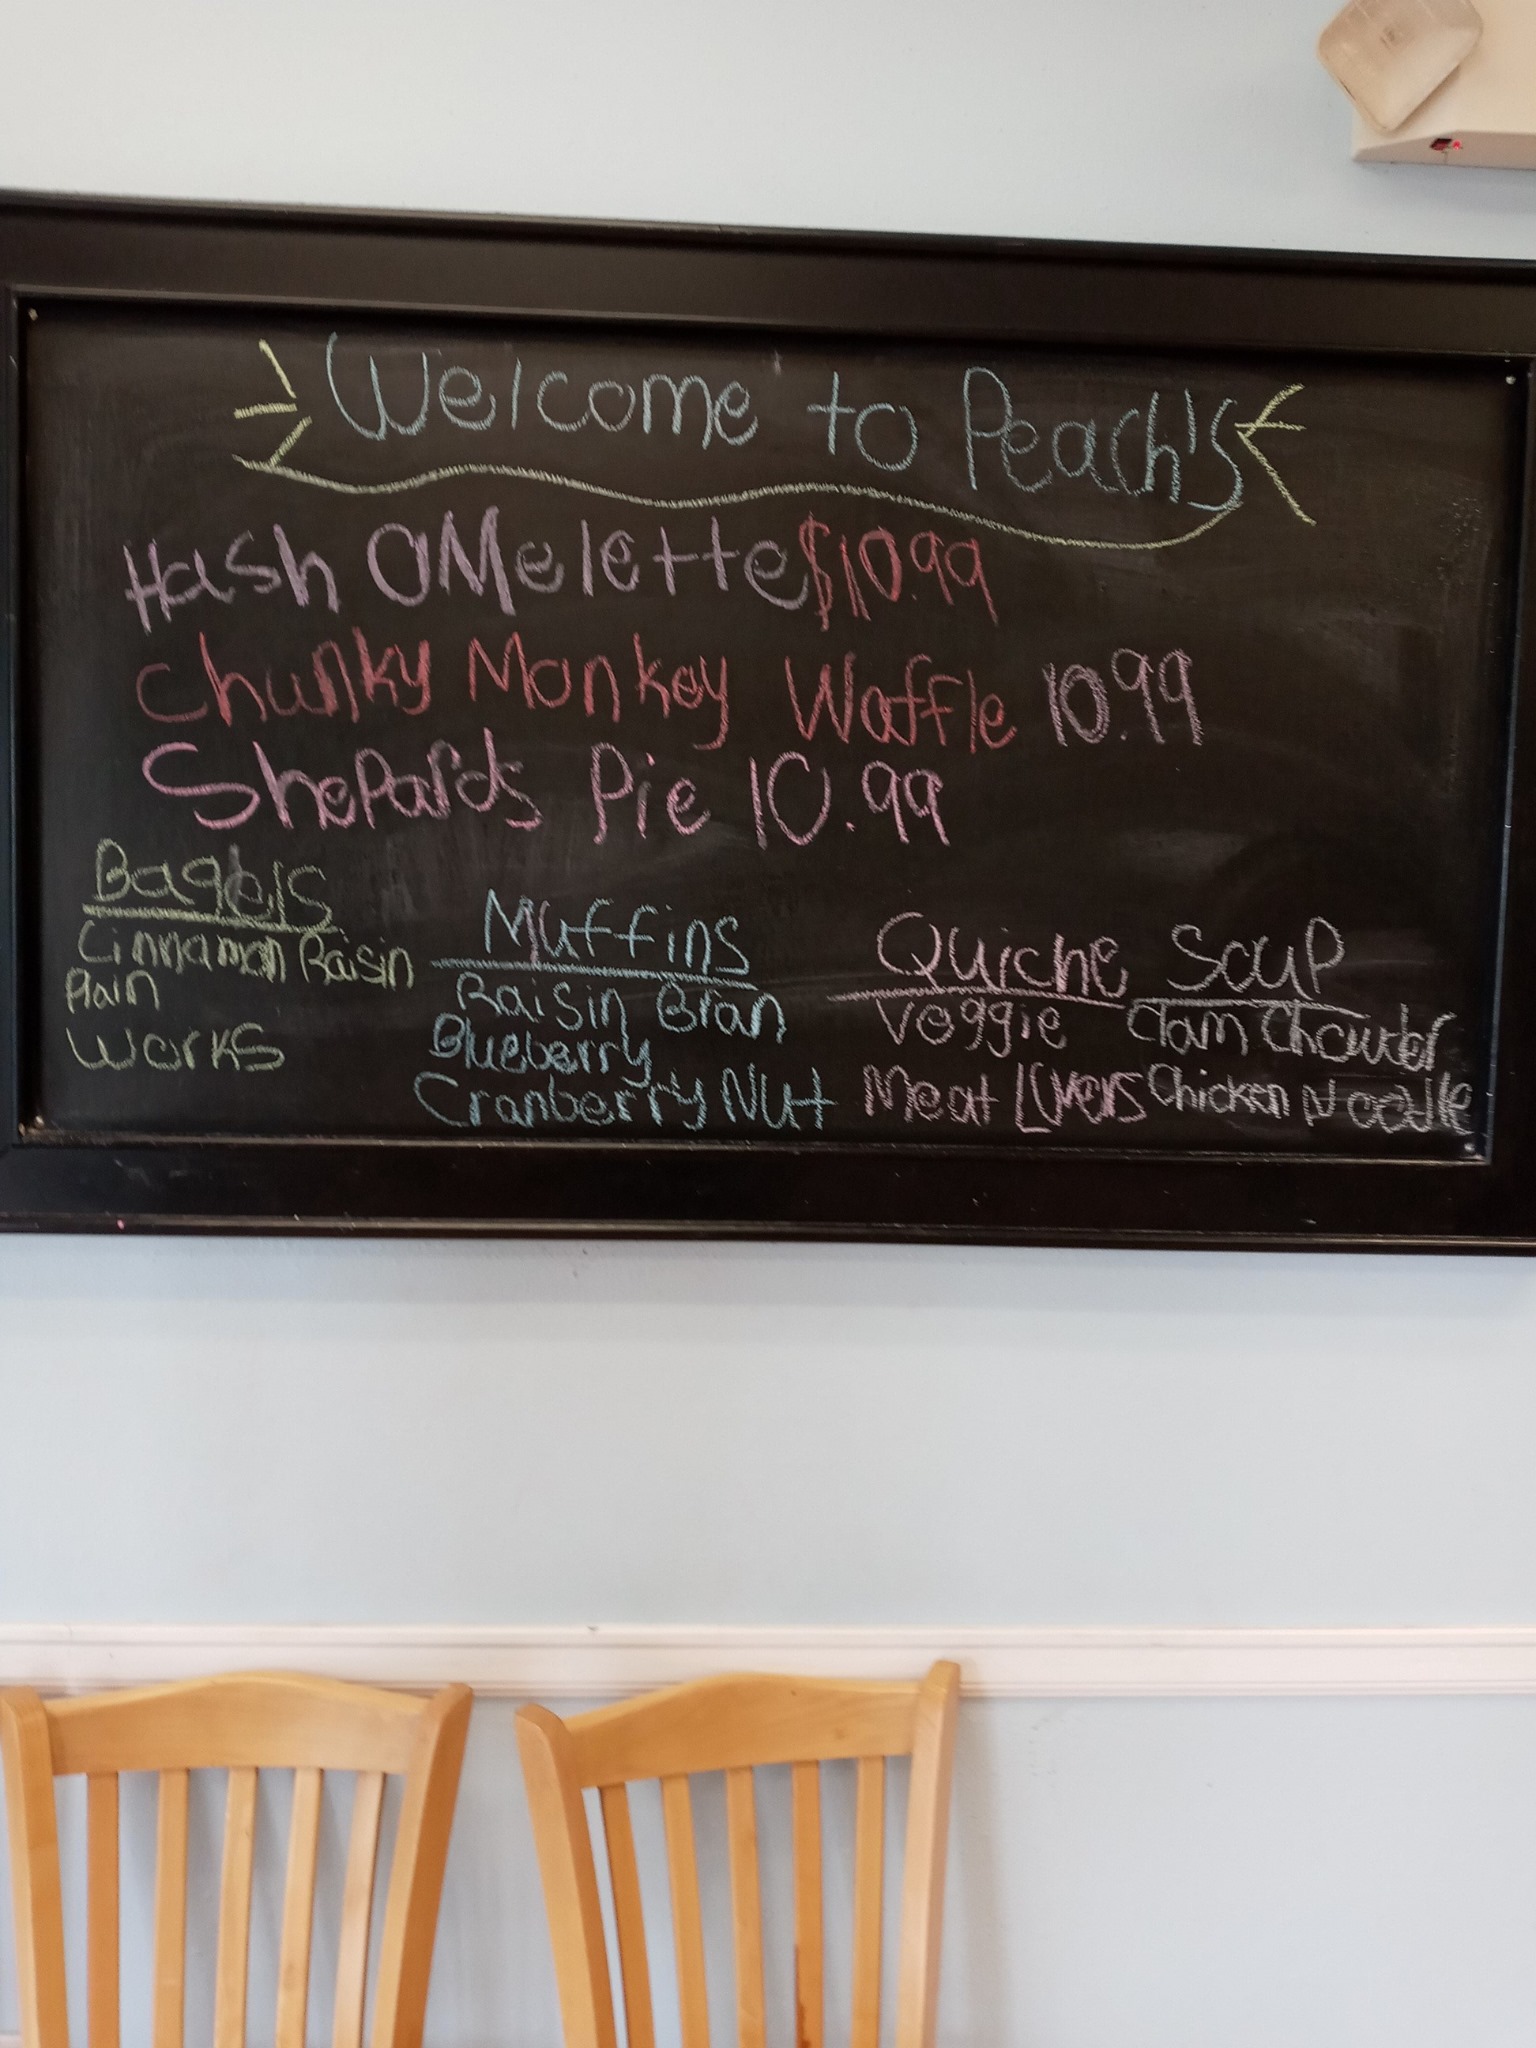 Welcome to Peach's
Hash OMelette $10.99
Chunky Monkey Waffle 10.99
Shepards Pie 10.99
Bagels
Cinnamon Raisin
Plain
Works
Muffins
Raisin Bran
Blueberry
Cranberry Nut
Quiche
Veggie
Meat Lovers
Soup
Clam Chowder
Chicken Noodle